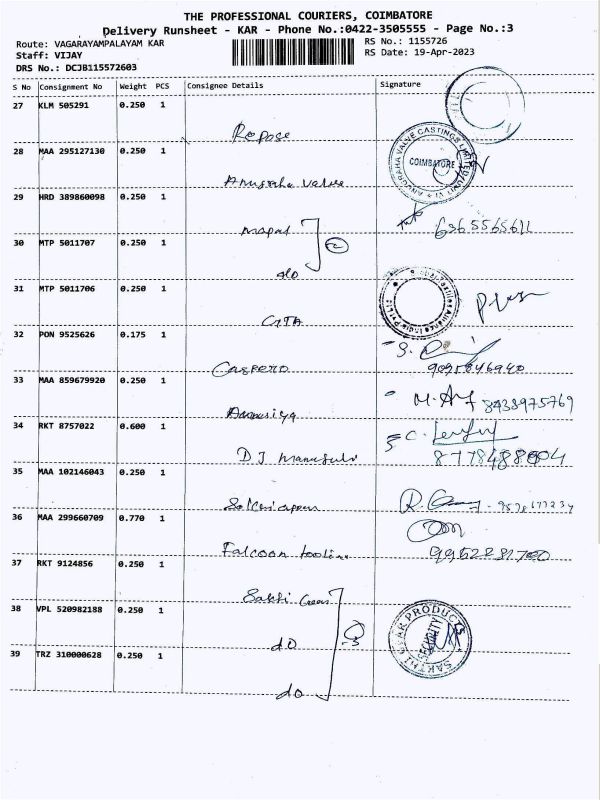 THE PROFESSIONAL COURIERS, COIMBATORE
Delivery Runsheet - KAR - Phone No.:0422-3505555 - Page No.:3
Route: VAGARAYAMPALAYAM KAR
RS No.: 1155726
Staff: VIJAY
RS Date: 19-Apr-2023
DRS No.: DCJB115572603
S No Consignment No Weight PCS Consignee Details Signature
27 KLM 505291 0.250 1
Repose
28 MAA 295127130 0.250 1
ANUGRAHA VALVE CASTINGS LIMITED
COIMBATORE
Anugraha valve
29 HRD 389860098 0.250 1
mapal
30 MTP 5011707 0.250 1
do
31 MTP 5011706 0.250 1
GTA
32 PON 9525626 0.175 1
Caspero
33 MAA 859679920 0.250 1
M. 8438975769
34 RKT 8757022 0.600 1
DJ
35 MAA 102146043 0.250 1
36 MAA 299660709 0.770 1
Falcoon
37 RKT 9124856 0.250 1
Sakthi Gear
38 VPL 520982188 0.250 1
do
SAKTHI GEAR PRODUCTS
SECURITY
39 TRZ 310000628 0.250 1
do